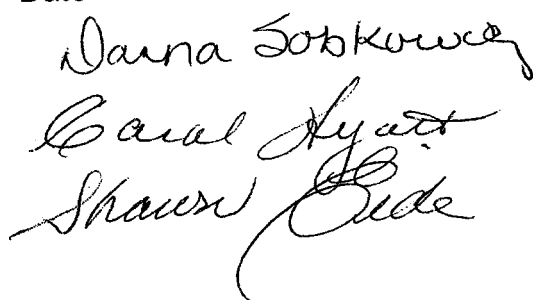 Date
Darna Sobkowicz
Carol Hyatt
Shawn Eide